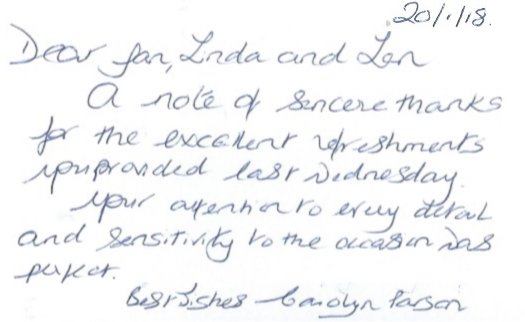 20/1/18.
Dear Jan, Linda and Len
A note of sincere thanks
for the excellent refreshments
you provided last Wednesday.
Your attention to every detail
and sensitivity to the occasion was
perfect.
Best Wishes Carolyn Parson